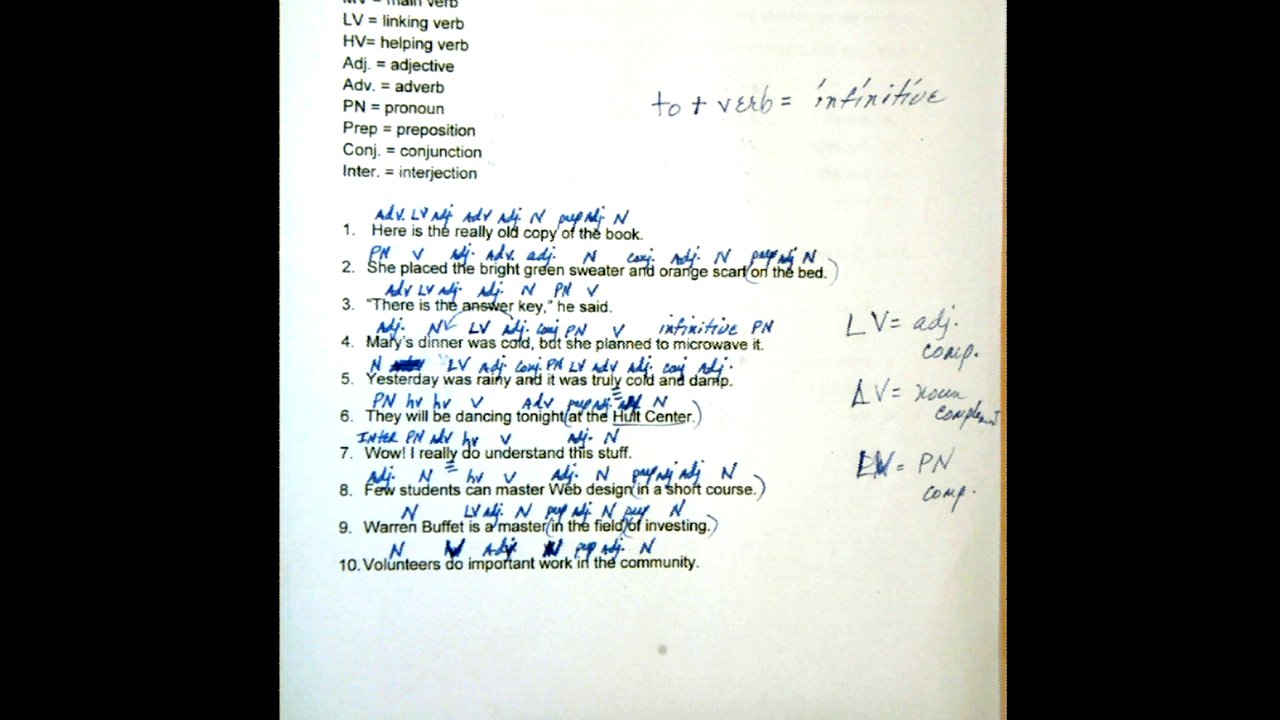 MV = main verb
LV = linking verb
HV= helping verb
Adj. = adjective
Adv. = adverb
to + verb = infinitive
PN = pronoun
Prep = preposition
Conj. = conjunction
Inter. = interjection
Adv. LV adj. Adv adj. N prep adj. N
1. Here is the really old copy of the book.
PN V adj. Adv. adj. N conj. Adj. N prep adj N
2. She placed the bright green sweater and orange scarf (on the bed.)
Adv LV adj. adj. N PN V
3. "There is the answer key," he said.
Adj. N LV adj. conj PN V infinitive PN
4. Mary's dinner was cold, but she planned to microwave it.
LV = adj.
comp.
N LV Adj. conj. PN LV adv adj. conj Adj.
5. Yesterday was rainy and it was truly cold and damp.
LV = noun
complement
PN hv hv v Adv prep adj. N
6. They will be dancing tonight (at the Hult Center.)
INter PN adv hv v adj. N
7. Wow! I really do understand this stuff.
LV = PN
comp.
Adj. N hv v Adj. N prep adj adj N
8. Few students can master Web design (in a short course.)
N LV adj. N prep adj. N prep N
9. Warren Buffet is a master (in the field) (of investing.)
N Adj. N prep adj. N
10. Volunteers do important work in the community.